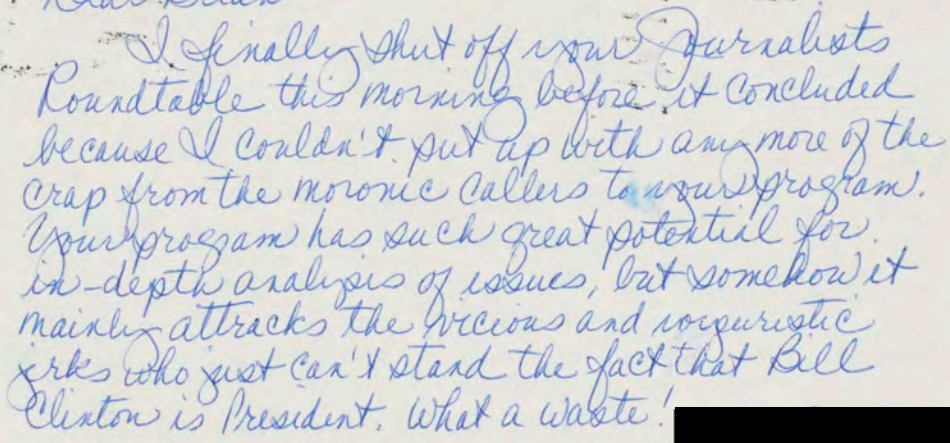 Dear Brian
I finally shut off your Journalists
Roundtable this morning before it concluded
because I couldn't put up with any more of the
crap from the moronic callers to your program.
Your program has such great potential for
in-depth analysis of issues, but somehow it
mainly attracks the vicious and
jerks who just can't stand the fact that Bill
Clinton is President. What a waste!